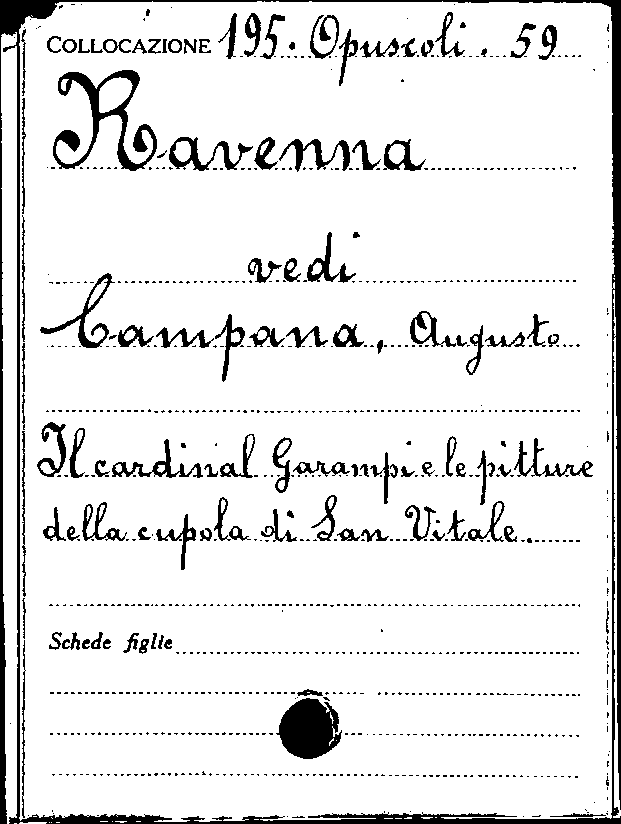 COLLOCAZIONE 195. Opuscoli. 59
Ravenna
vedi
Campana, Augusto
Il cardinal Garampi e le pitture
della cupola di San Vitale.
Schede figlie